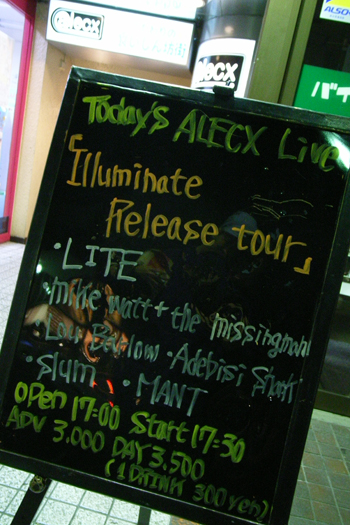 ALECX
alecx
ALSO
バ
Today's ALECX Live
「Illuminate
Release tour」
・LITE
・mike watt + the missingmen
・Lou Barlow ・Adebisi Shank
・slum ・MANT
open 17:00 Start 17:30
ADV 3.000 DAY 3.500
(1DRINK 300yen)